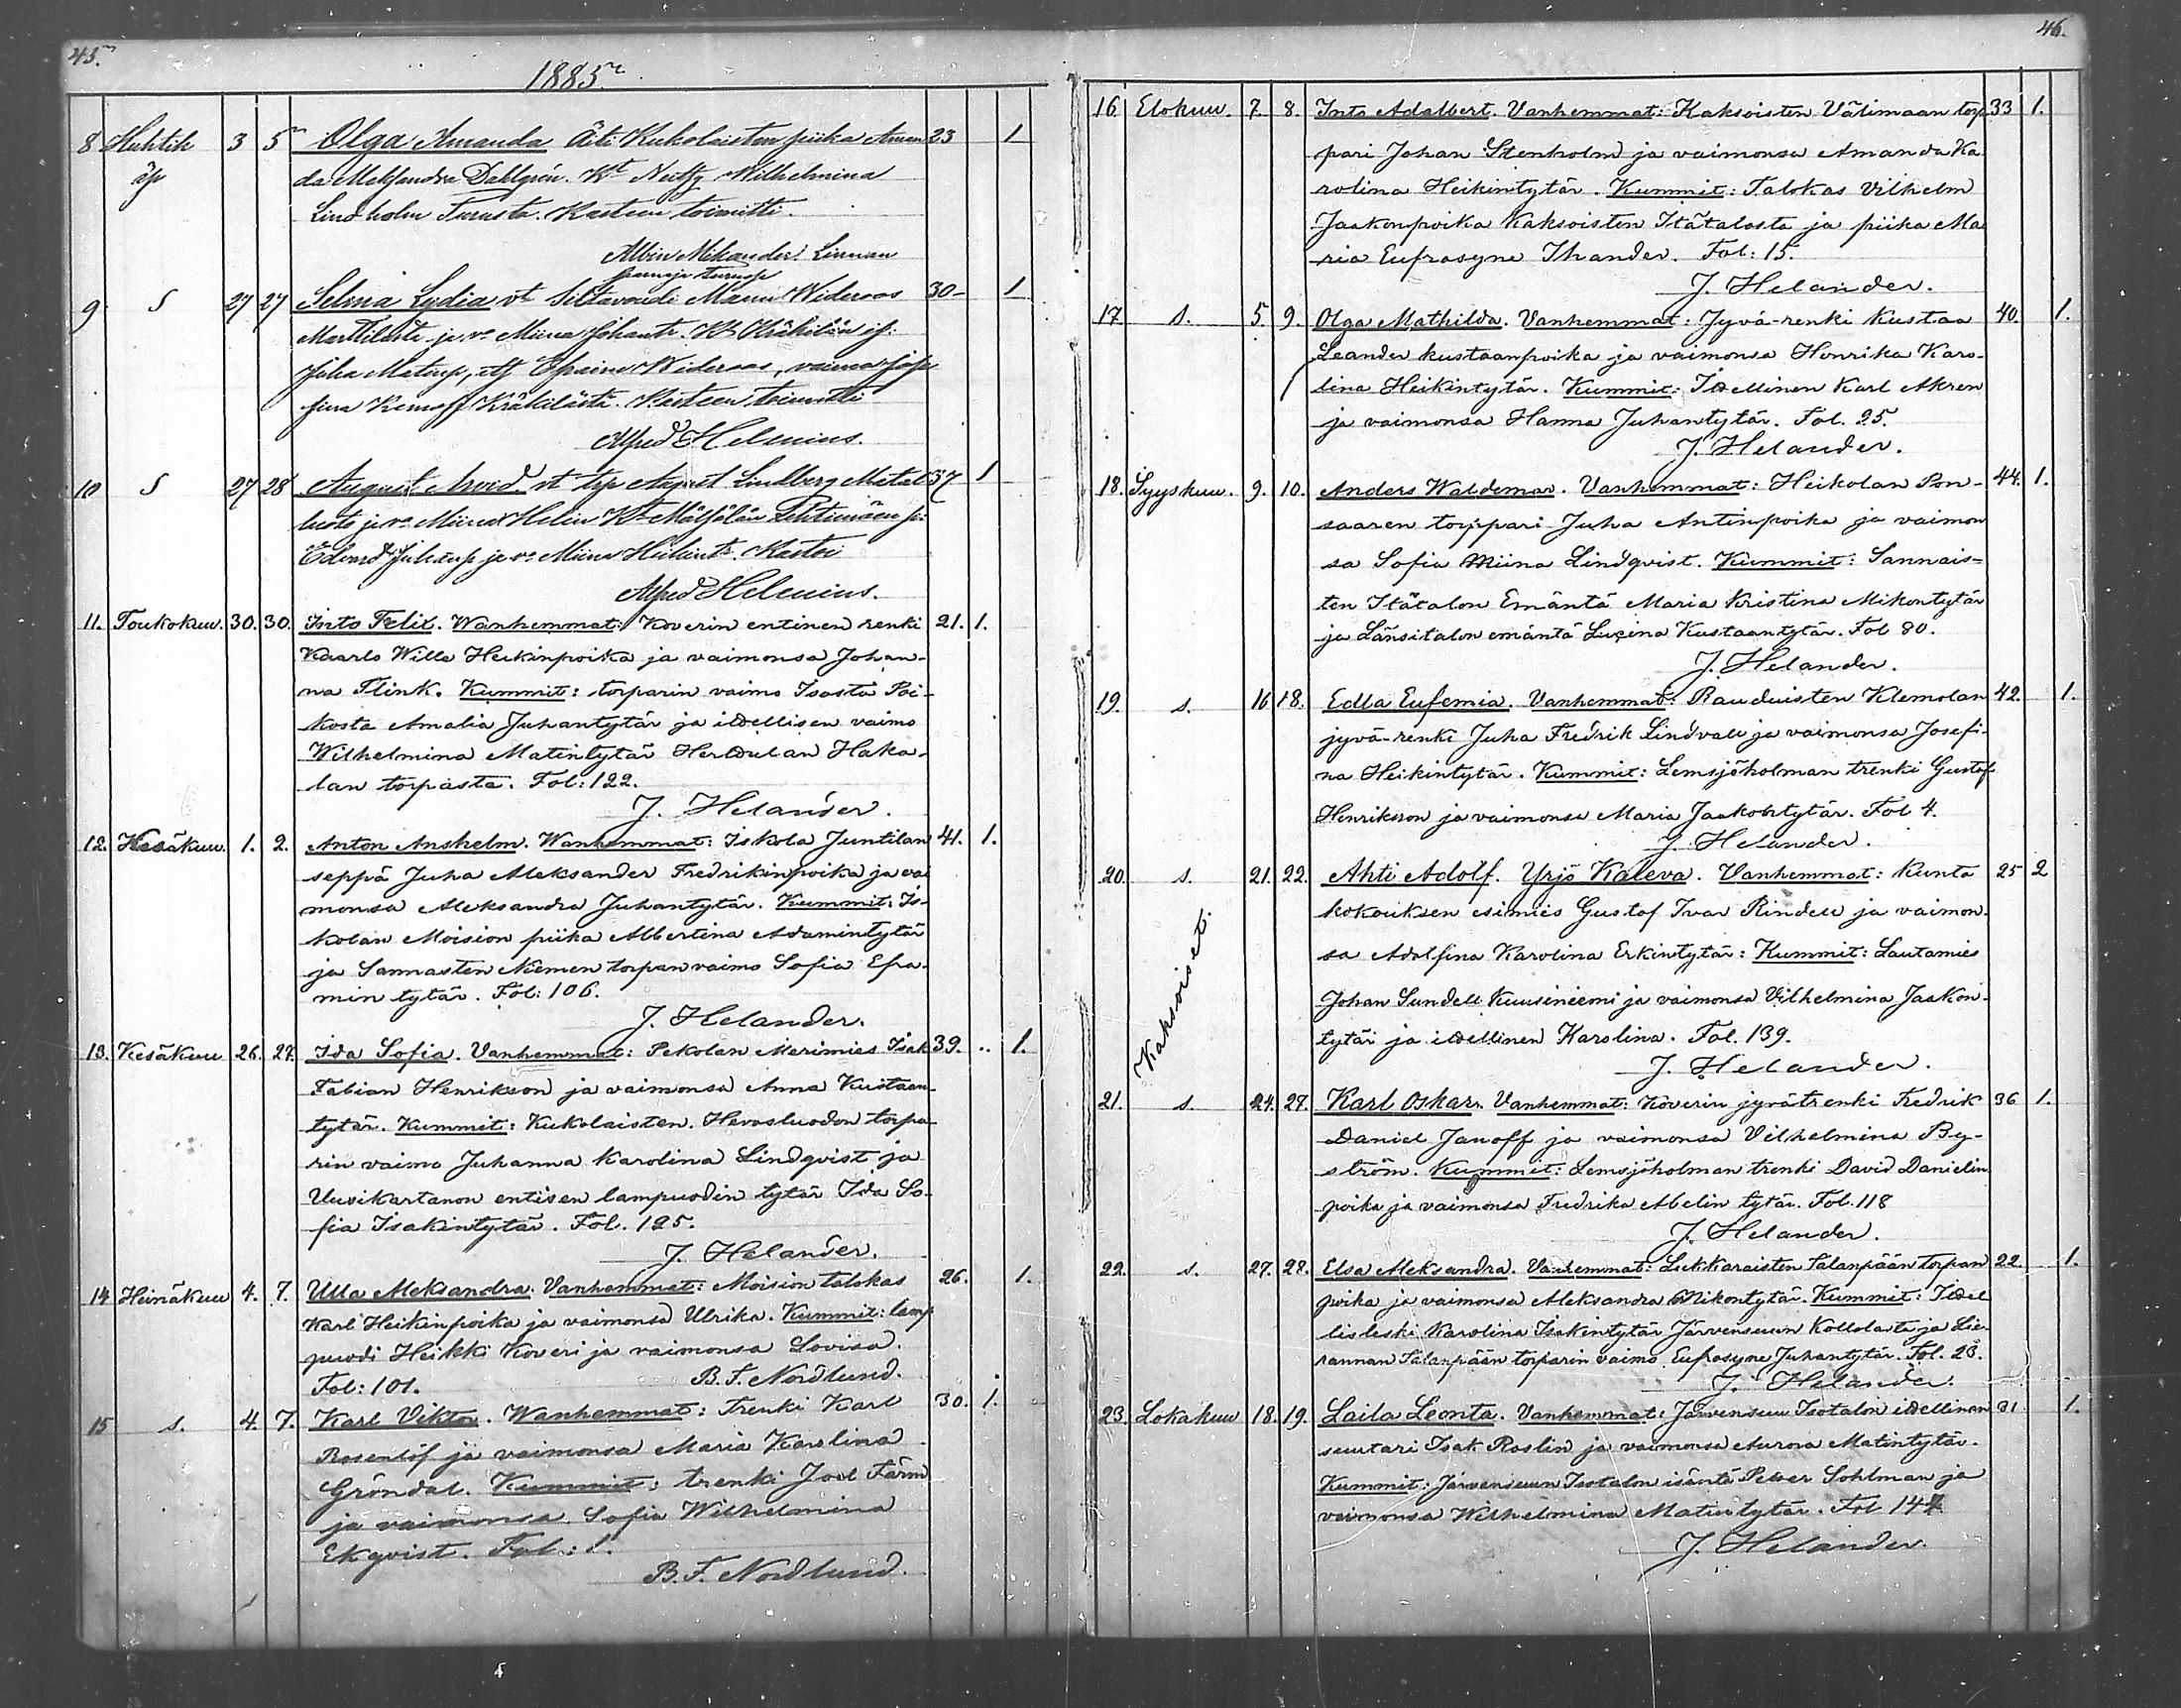 45.
1885
8 Huhtik 3 5 Olga Amanda Äiti Kukolaisten piika Aman- 23 1
äp da Aleksandra Dahlgrén. Kt Neitsy Wilhelmina
Lindholm Turusta. Kasteen toimitti
Albin Mikander. Linnan
9 S 27 27 Selma Lydia vt Siltavouti Manu Wideroos 30- 1
Marttilasta ja vo Miina Johantr. Kt Kräkilän
Juha Matinp, Efraim Wideroos, vaimo
Kräkilästä. Kasteen toimitti
Alfred Helenius.
10 S 27 28 August Arvid vt trp August Lindberg 37 1
ja vo Miina Helin Kt
Edvard ja vo Miina Kastoi
Alfred Helenius.
11. Toukokuu. 30. 30. Into Felix. Wanhemmat: Koverin entinen renki 21. 1.
Kaarlo Wille Heikinpoika ja vaimonsa Johan-
na Flink. Kummit: torparin vaimo Isosta Poi-
kosta Amalia Juhantytär ja itsellisen vaimo
Wilhelmina Matintytär Herttulan Haka-
lan torpasta. Fol: 122.
J. Helander.
12. Kesäkuu. 1. 2. Anton Anshelm. Wanhemmat: Iskola Juntilan 41. 1.
seppä Juha Aleksander Fredrikinpoika ja vai
monsa Aleksandra Juhantytär. Kummit: Is-
kolan Moision piika Albertina Adamintytär
ja Sannasten Niemen torpan vaimo Sofia Efra-
min tytär. Fol: 106.
J. Helander.
13. Kesäkuu 26. 27. Ida Sofia. Vanhemmat: Pekolan Merimies Isak 39. 1.
Fabian Henrikson ja vaimonsa Anna Kustaan-
tytär. Kummit: Kukolaisten. Hevosluodon torpa-
rin vaimo Juhanna Karolina Lindqvist ja
Uusikartanon entisen lampuodin tytär Ida So-
fia Isakintytär. Fol. 125.
J. Helander.
14 Heinäkuu 4. 7. Ulla Aleksandra. Vanhemmat: Moision talokas 26. 1.
Karl Heikinpoika ja vaimonsa Ulrika. Kummit: lamp
puodi Heikki Koveri ja vaimonsa Lovisa.
Fol: 101. B. F. Nordlund.
15 s. 4. 7. Karl Viktor. Wanhemmat: Trenki Karl 30. 1.
Rosenlöf ja vaimonsa Maria Karolina
Gröndal. Kummit: trenki Joel Färm
ja vaimonsa Sofia Wilhelmina
Ekqvist. Fol: 1.
B. F. Nordlund.
46.
16. Elokuu. 7. 8. Into Adalbert. Vanhemmat: Kaksoisten Välimaan torp 33 1.
pari Johan Stenholm ja vaimonsa Amanda Ka
rolina Heikintytär. Kummit: Talokas Vilhelm
Jaakonpoika Kaksoisten Itätalosta ja piika Ma
ria Eufrosyne Thander. Fol: 15.
J. Helander.
17. s. 5. 9. Olga Mathilda. Vanhemmat: Jyvä-renki Kustaa 40. 1.
Leander kustaanpoika ja vaimonsa Henrika Karo-
lina Heikintytär. Kummit: Itsellinen Karl Akren
ja vaimonsa Hanna Juhantytär. Fol. 25.
J. Helander.
18. Syyskuu. 9. 10. Anders Waldemar. Vanhemmat: Heikolan Pon- 44. 1.
saaren torppari Juha Antinpoika ja vaimon
sa Sofia Miina Lindqvist. Kummit: Sannais=
ten Itätalon Emäntä Maria Kristina Mikontytär
ja Länsitalon emäntä Lusina Kustaantytär. Fol 80.
J. Helander.
19. s. 16 18. Edla Eufemia. Vanhemmat: Rauduisten Klemolan 42. 1.
jyvä-renki Juha Fredrik Lindvall ja vaimonsa Josefi-
na Heikintytär. Kummit: Lemsjöholman trenki Gustaf
Henrikson ja vaimonsa Maria Jaakobtytär. Fol 4.
J. Helander.
20. s. 21. 22. Ahti Adolf. Yrjö Kaleva. Vanhemmat: Kunta 25 2
Kaksoiset.
kokouksen esimies Gustof Ivar Rindell ja vaimon-
sa Adolfina Karolina Erkintytär: Kummit: Lautamies
Johan Sundell Kuusiniemi ja vaimonsa Vilhelmina Jaakon-
tytär ja itsellinen Karolina. Fol. 139.
J. Helander.
21. s. 24. 27. Karl Oskar. Vanhemmat: Koverin jyvätrenki Fredrik 36 1.
Daniel Janoff ja vaimonsa Vilhelmina By-
ström. Kummit: Lemsjöholman trenki David Danielin
poika ja vaimonsa Fredrika Abelin tytär. Fol. 118
J. Helander.
22. s. 27. 28. Elsa Aleksandra. Vanhemmat: Liekkaraisten Salanpään torpan 22. 1.
poika ja vaimonsa Aleksandra Mikontytär. Kummit: Itsel
lis leski Karolina Isakintytär Järvensuun Kollola ta ja Lie-
rannan Salanpään torparin vaimo Eufrosyne Juhantytär. Fol. 23.
J. Helander.
23. Lokakuu 18. 19. Laila Leonta. Vanhemmat: Järvensuu Isotalon itsellinen 31 1.
suutari Isak Roslin ja vaimonsa Aurora Matintytär.
Kummit: Järvensuun Isotalon isäntä Petter Sohlman ja
vaimonsa Wilhelmina Matintytär. Fol 144
J. Helander.